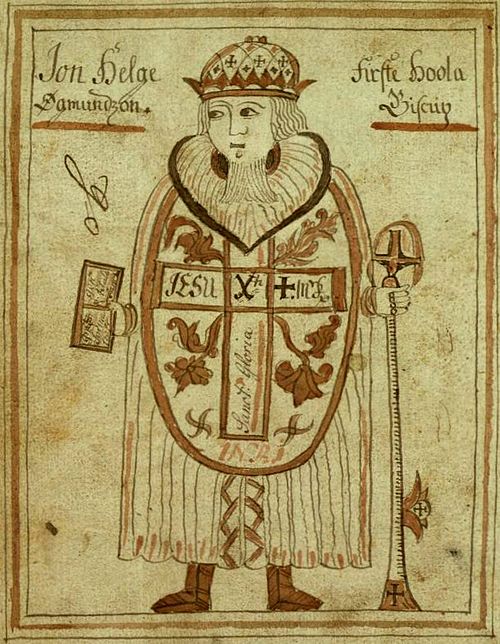 Jon Helge
Øgmundzon.
Firste Hoola
Biscup
JESU Xti
Sanct Gloria
INRI